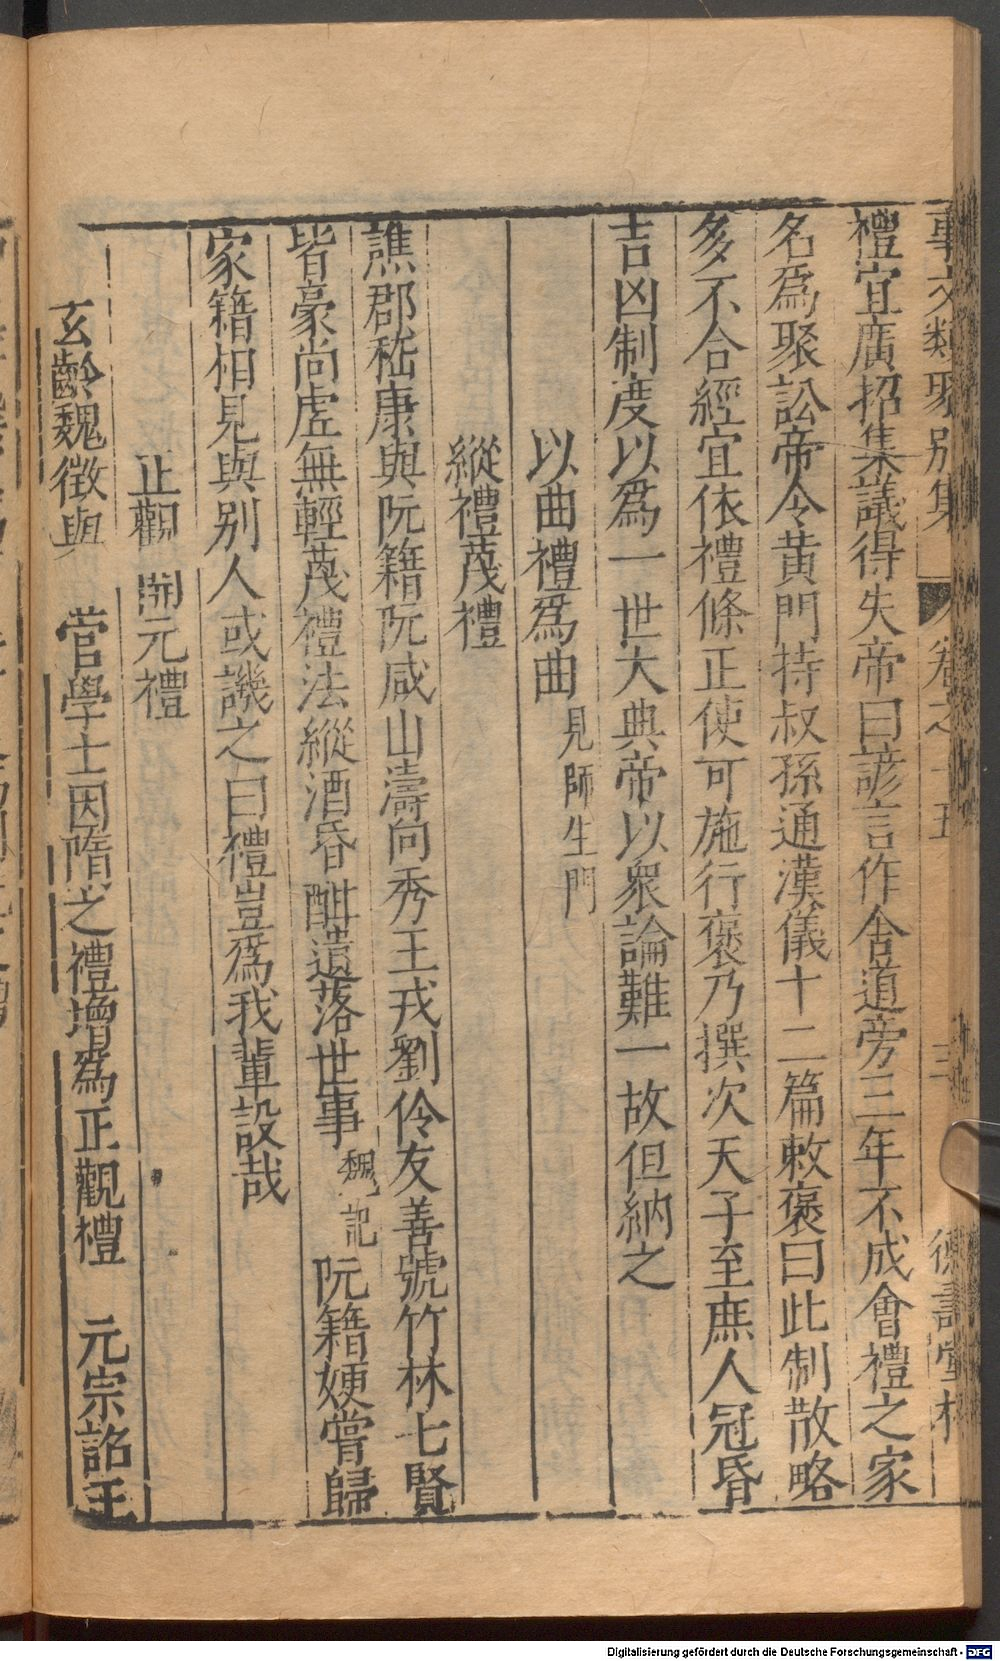 事文類聚別集 卷之十五 三 德壽堂梓
禮宜廣招集議得失帝曰諺言作舍道旁三年不成會禮之家
名爲聚訟帝令黄門持叔孫通漢儀十二篇敕褒曰此制散略
多不合經宜依禮條正使可施行褒乃撰次天子至庶人冠昏
吉凶制度以爲一世大典帝以衆論難一故但納之
以曲禮爲曲 見師生門
縱禮蔑禮
譙郡嵇康與阮籍阮咸山濤向秀王戎劉伶友善號竹林七賢
皆豪尚虚無輕蔑禮法縱酒昏酣遺落世事 魏記 阮籍㛐嘗歸
家籍相見與别人或譏之曰禮豈爲我輩設哉
正觀 開元禮
玄齡魏徵與 官學士因隋之禮增爲正觀禮 元宗詔王
Digitalisierung gefördert durch die Deutsche Forschungsgemeinschaft - DFG